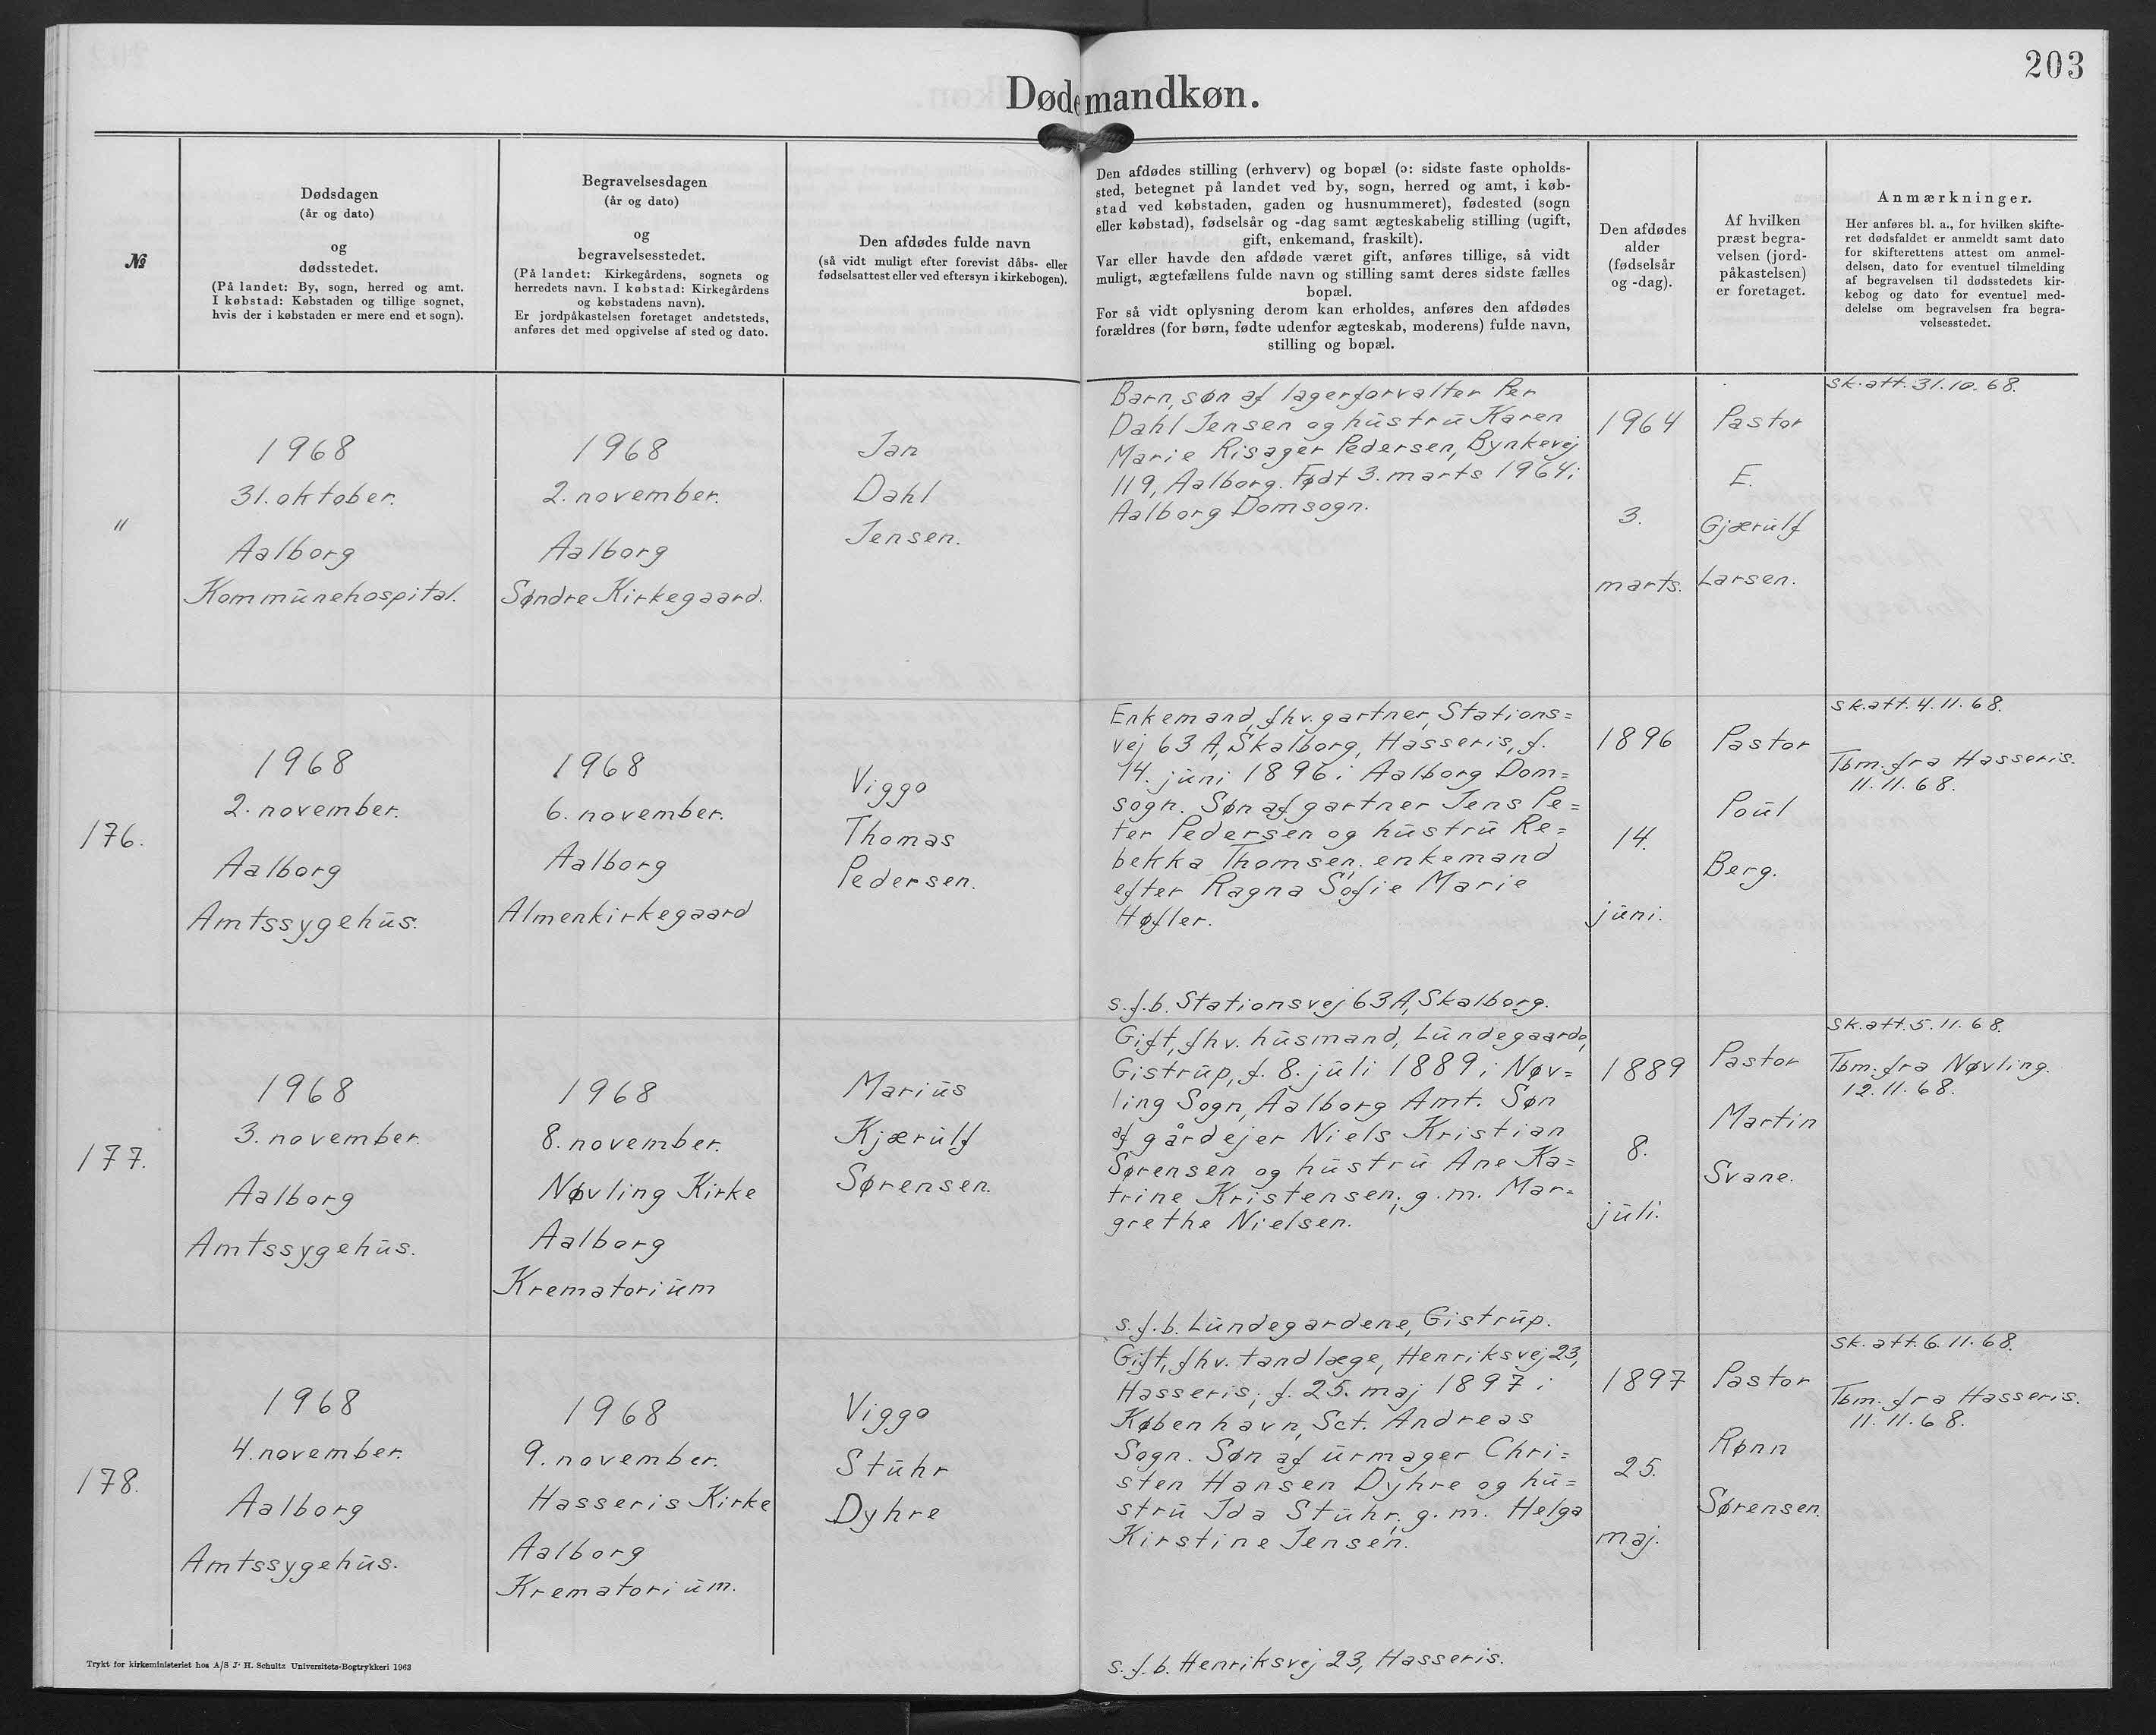 203
Døde mandkøn.
№
Dødsdagen
(år og dato)
og
dødsstedet.
(På landet: By, sogn, herred og amt.
I købstad: Købstaden og tillige sognet,
hvis der i købstaden er mere end et sogn).
Begravelsesdagen
(år og dato)
og
begravelsesstedet.
(På landet: Kirkegårdens, sognets og
herredets navn. I købstad: Kirkegårdens
og købstadens navn).
Er jordpåkastelsen foretaget andetsteds,
anføres det med opgivelse af sted og dato.
Den afdødes fulde navn
(så vidt muligt efter forevist dåbs- eller
fødselsattest eller ved eftersyn i kirkebogen).
Den afdødes stilling (erhverv) og bopæl (ɔ: sidste faste opholds-
sted, betegnet på landet ved by, sogn, herred og amt, i køb-
stad ved købstaden, gaden og husnummeret), fødested (sogn
eller købstad), fødselsår og -dag samt ægteskabelig stilling (ugift,
gift, enkemand, fraskilt).
Var eller havde den afdøde været gift, anføres tillige, så vidt
muligt, ægtefællens fulde navn og stilling samt deres sidste fælles
bopæl.
For så vidt oplysning derom kan erholdes, anføres den afdødes
forældres (for børn, fødte udenfor ægteskab, moderens) fulde navn,
stilling og bopæl.
Den afdødes
alder
(fødselsår
og -dag).
Af hvilken
præst begra-
velsen (jord-
påkastelsen)
er foretaget.
Anmærkninger.
Her anføres bl. a., for hvilken skifte-
ret dødsfaldet er anmeldt samt dato
for skifterettens attest om anmel-
delsen, dato for eventuel tilmelding
af begravelsen til dødsstedets kir-
kebog og dato for eventuel med-
delelse om begravelsen fra begra-
velsesstedet.
"
1968
31. oktober.
Aalborg
Kommunehospital.
1968
2. november.
Aalborg
Søndre Kirkegaard.
Jan
Dahl
Jensen.
Barn, søn af lagerforvalter Per
Dahl Jensen og hustru Karen
Marie Risager Pedersen, Bynkevej
119, Aalborg. Født 3. marts 1964 i
Aalborg Domsogn.
1964
3.
marts.
Pastor
E.
Gjærulf
Larsen.
sk.att. 31.10.68.
176.
1968
2. november.
Aalborg
Amtssygehus.
1968
6. november.
Aalborg
Almenkirkegaard
Viggo
Thomas
Pedersen.
Enkemand, fhv. gartner, Stations=
vej 63 A, Skalborg, Hasseris, f.
14. juni 1896 i Aalborg Dom=
sogn. Søn af gartner Jens Pe=
ter Pedersen og hustru Re=
bekka Thomsen, enkemand
efter Ragna Sofie Marie
Høfler.
s.f.b. Stationsvej 63 A, Skalborg.
1896
14.
juni.
Pastor
Poul
Berg.
sk.att. 4.11.68.
Tbm. fra Hasseris.
11.11.68.
177.
1968
3. november.
Aalborg
Amtssygehus.
1968
8. november.
Nøvling Kirke
Aalborg
Krematorium
Marius
Kjærulf
Sørensen.
Gift, fhv. husmand, Lundegaarde,
Gistrup, f. 8. juli 1889 i Nøv=
ling Sogn, Aalborg Amt. Søn
af gårdejer Niels Kristian
Sørensen og hustru Ane Ka=
trine Kristensen; g.m. Mar=
grethe Nielsen.
s.f.b. Lundegardene, Gistrup.
1889
8.
juli.
Pastor
Martin
Svane.
sk.att. 5.11.68.
Tbm. fra Nøvling.
12.11.68.
178.
1968
4. november.
Aalborg
Amtssygehus.
1968
9. november.
Hasseris Kirke
Aalborg
Krematorium.
Viggo
Stuhr
Dyhre
Gift, fhv. tandlæge, Henriksvej 23,
Hasseris; f. 25. maj 1897 i
København, Sct. Andreas
Sogn. Søn af urmager Chri=
sten Hansen Dyhre og hu=
stru Ida Stuhr; g.m. Helga
Kirstine Jensen.
s.f.b. Henriksvej 23, Hasseris.
1897
25.
maj.
Pastor
Rønn
Sørensen.
sk.att. 6.11.68.
Tbm. fra Hasseris.
11.11.68.
Trykt for kirkeministeriet hos A/S J. H. Schultz Universitets-Bogtrykkeri 1963